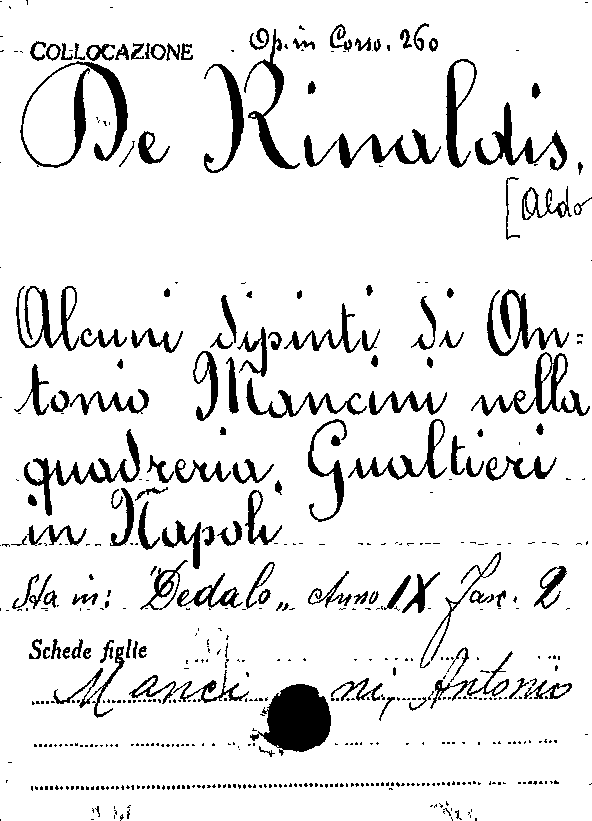 COLLOCAZIONE Op. in Corso. 260
De Rinaldis,
[Aldo
Alcuni dipinti di An=
tonio Mancini nella
quadreria Gualtieri
in Napoli
Sta in: "Dedalo„ Anno IX Fasc. 2
Schede figlie
Mancini, Antonio